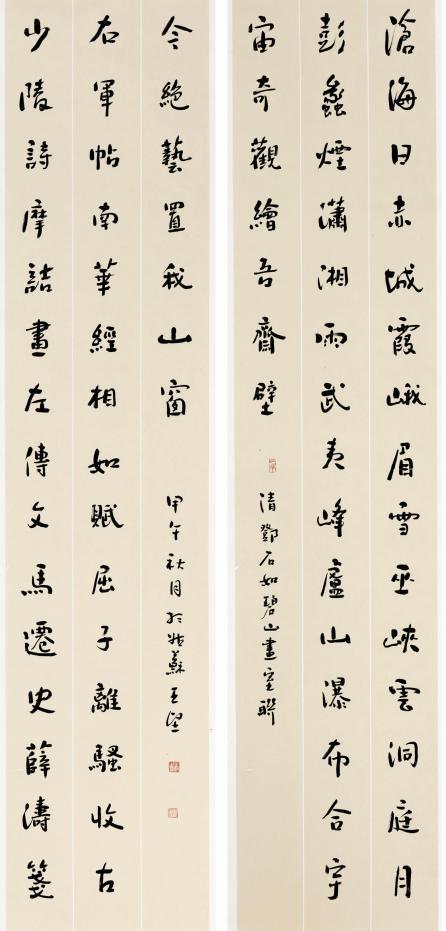 滄海日赤城霞峨眉雪巫峽雲洞庭月
彭蠡煙瀟湘雨武夷峰廬山瀑布合宇
宙奇觀繪吾齋壁
清鄧石如碧山畫室聯
少陵詩摩詰畫左傳文馬遷史薛濤箋
右軍帖南華經相如賦屈子離騷收古
今絕藝置我山窗
甲午秋月於姑蘇王